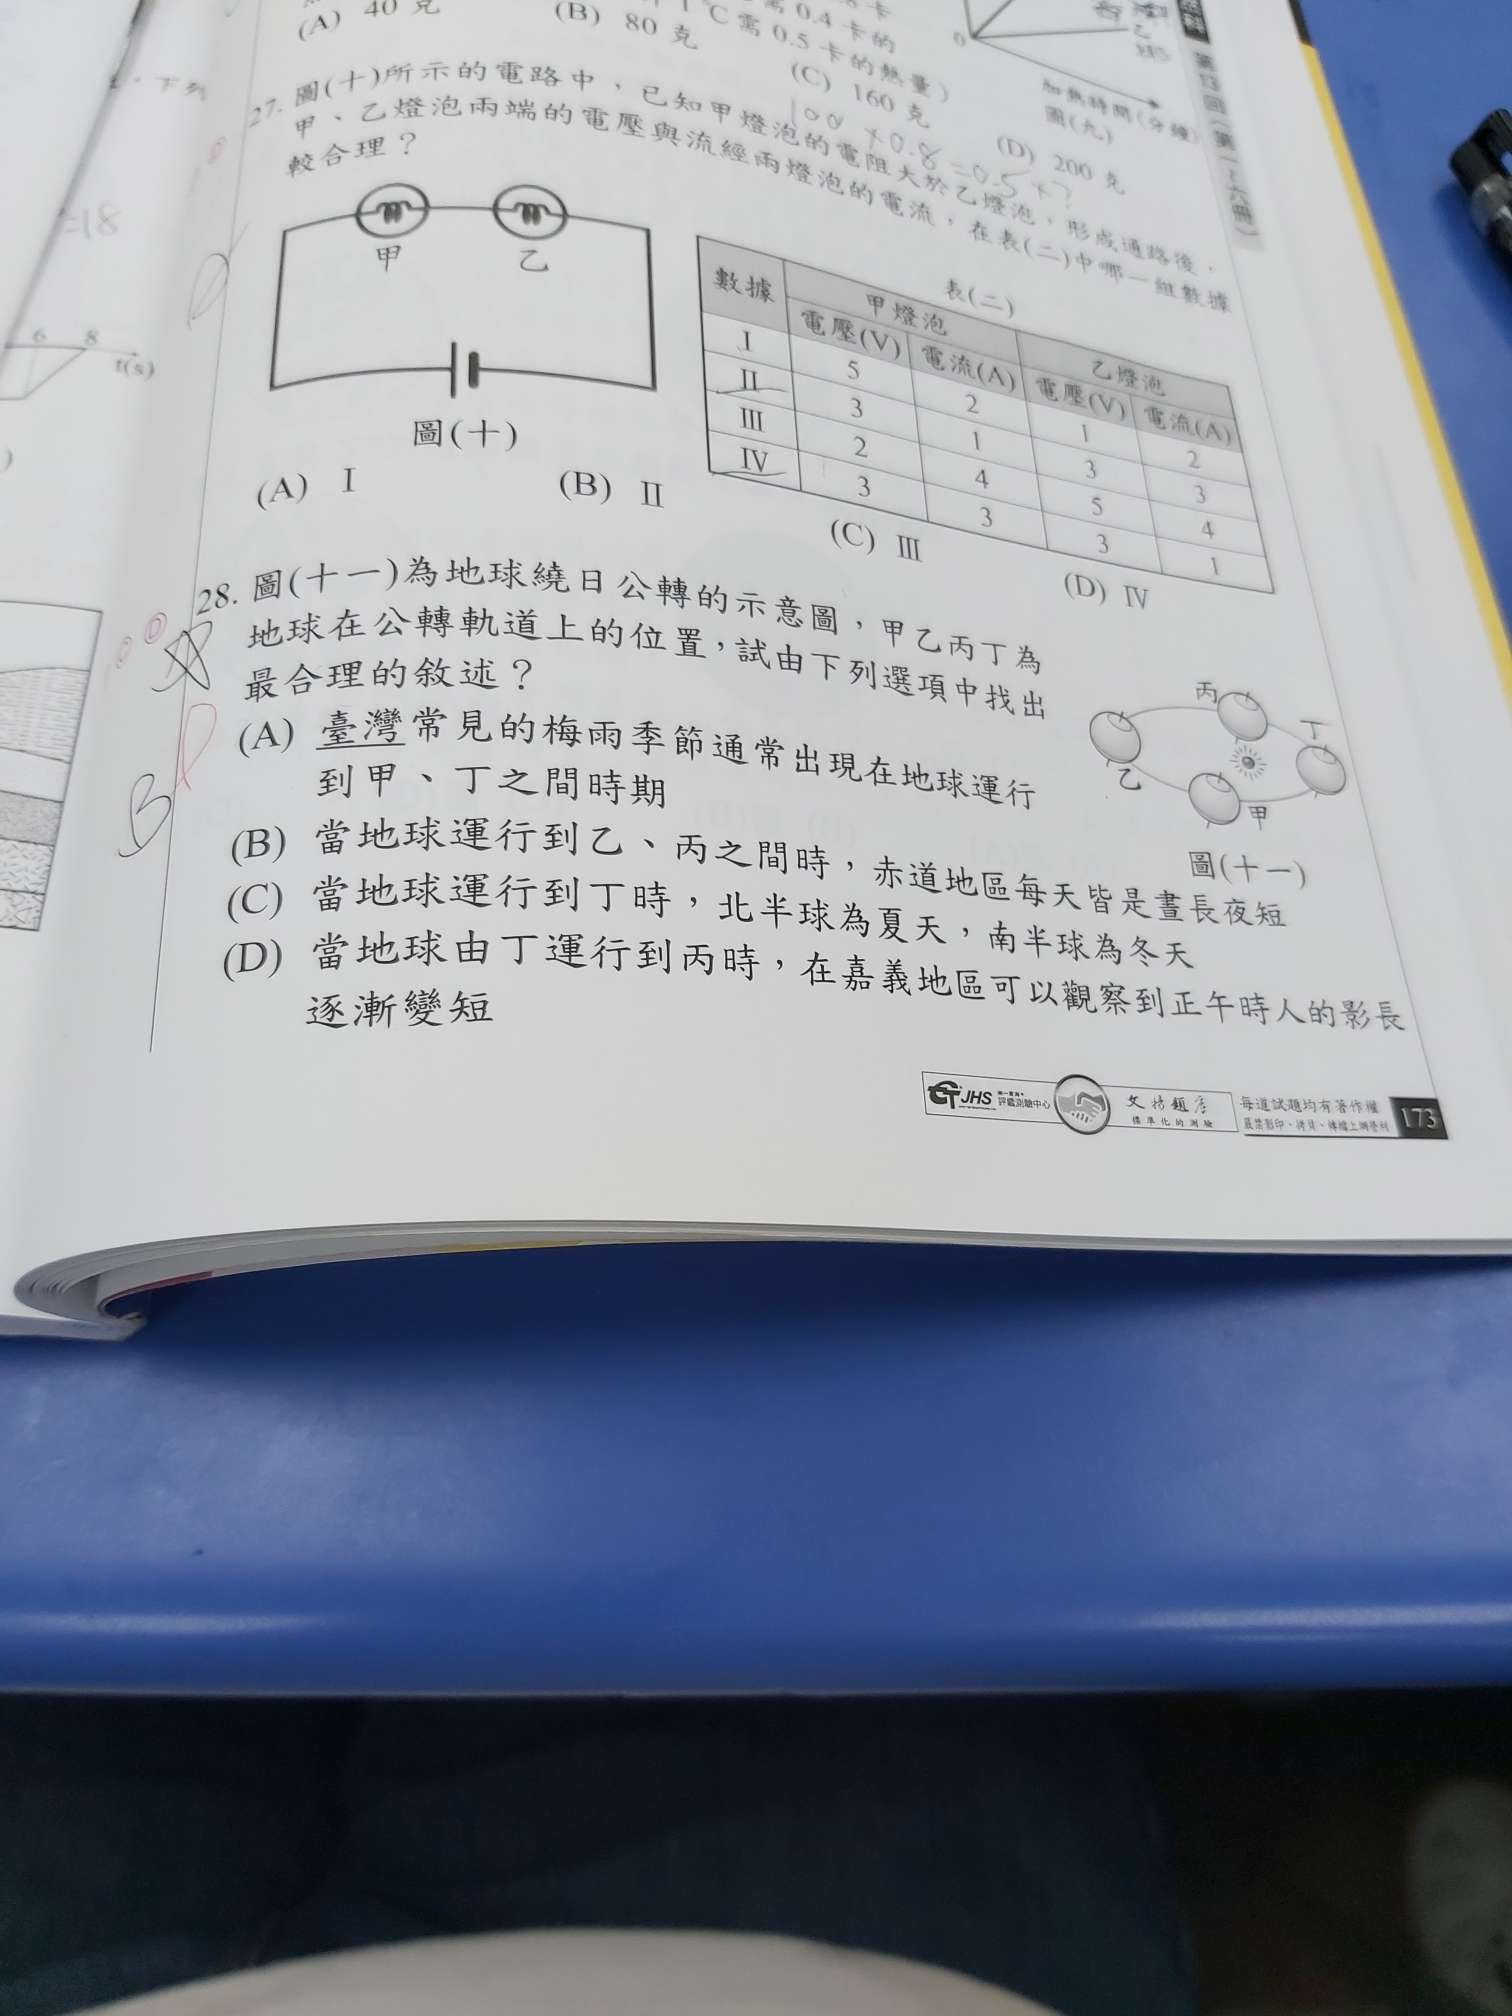 卡
需 0.4 卡的
1℃需 0.5 卡的熱量)
(A) 40 克
(B) 80 克
(C) 160 克
(D) 200 克
100 × 0.8 = 0.5 × ?
0
乙
加熱時間(分鐘)
圖(九)
第13回(第一~六冊)
下列
=18
6
8
t(s)
27. 圖(十)所示的電路中，已知甲燈泡的電阻大於乙燈泡，形成通路後，
甲、乙燈泡兩端的電壓與流經兩燈泡的電流，在表(二)中哪一組數據
較合理？
甲
乙
圖(十)
表(二)
數據 甲燈泡 乙燈泡
電壓(V) 電流(A) 電壓(V) 電流(A)
I 5 2 1 2
II 3 1 3 3
III 2 4 5 4
IV 3 3 3 1
(A) I
(B) II
(C) III
(D) IV
28. 圖(十一)為地球繞日公轉的示意圖，甲乙丙丁為
地球在公轉軌道上的位置，試由下列選項中找出
最合理的敘述？
(A) 臺灣常見的梅雨季節通常出現在地球運行
到甲、丁之間時期
(B) 當地球運行到乙、丙之間時，赤道地區每天皆是晝長夜短
(C) 當地球運行到丁時，北半球為夏天，南半球為冬天
(D) 當地球由丁運行到丙時，在嘉義地區可以觀察到正午時人的影長
逐漸變短
B
丙
丁
乙
甲
圖(十一)
JHS
評鑑測驗中心
標準化的測驗
每道試題均有著作權
嚴禁影印、拷貝、
173